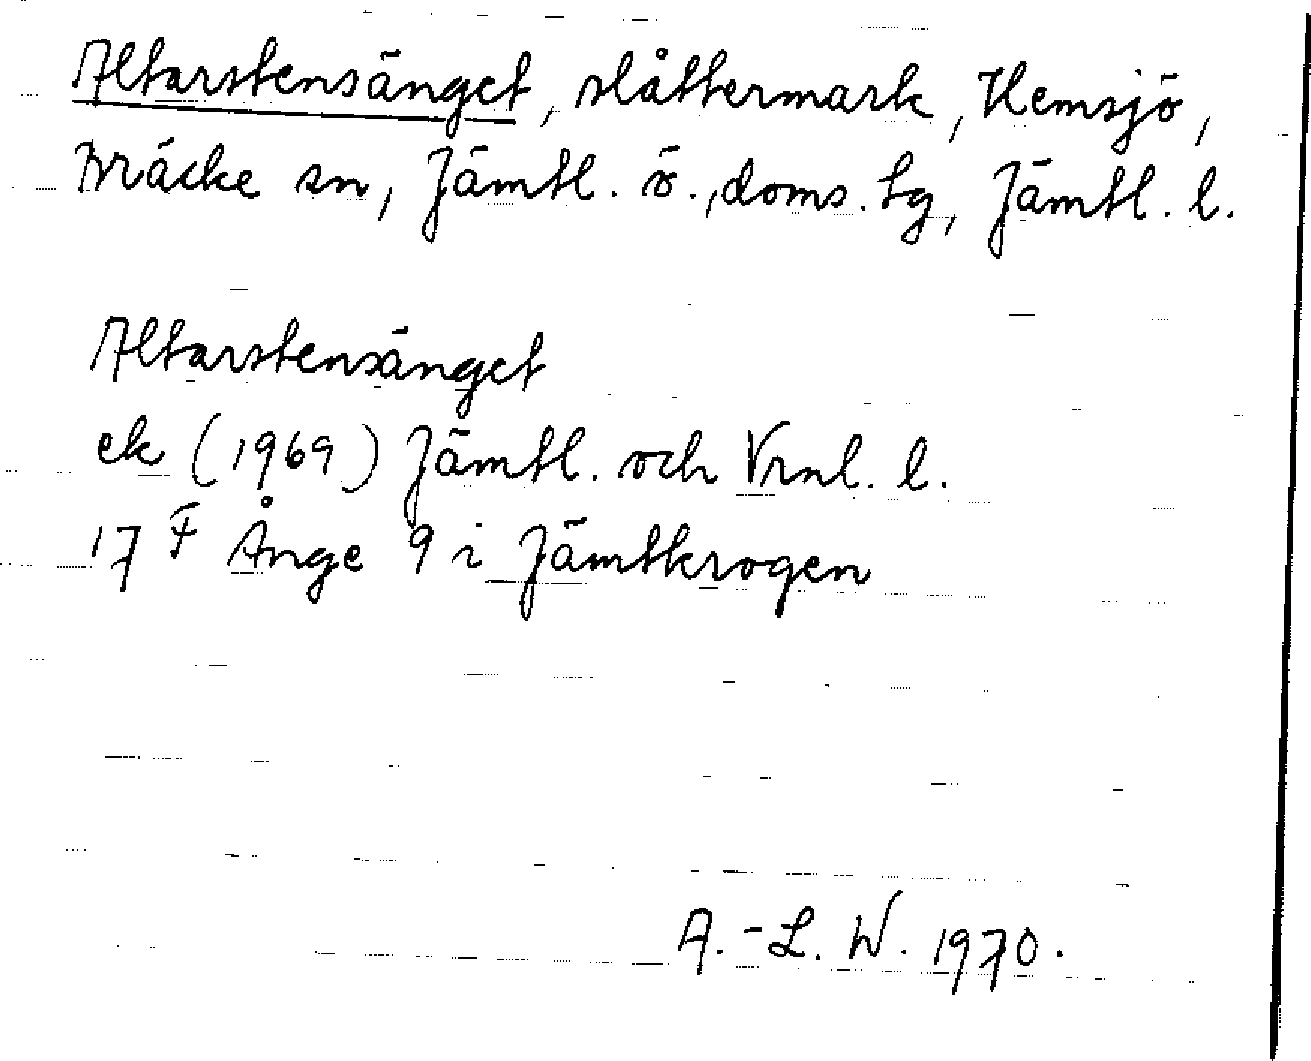 Altarstensänget, slåttermark, Hemsjö,
Bräcke sn, Jämtl. ö., doms. tg, Jämtl. l.
Altarstensänget
ek (1969) Jämtl. och Vrnl. l.
17 F Ånge 9 i Jämtkrogen
A.-L. W. 1970.